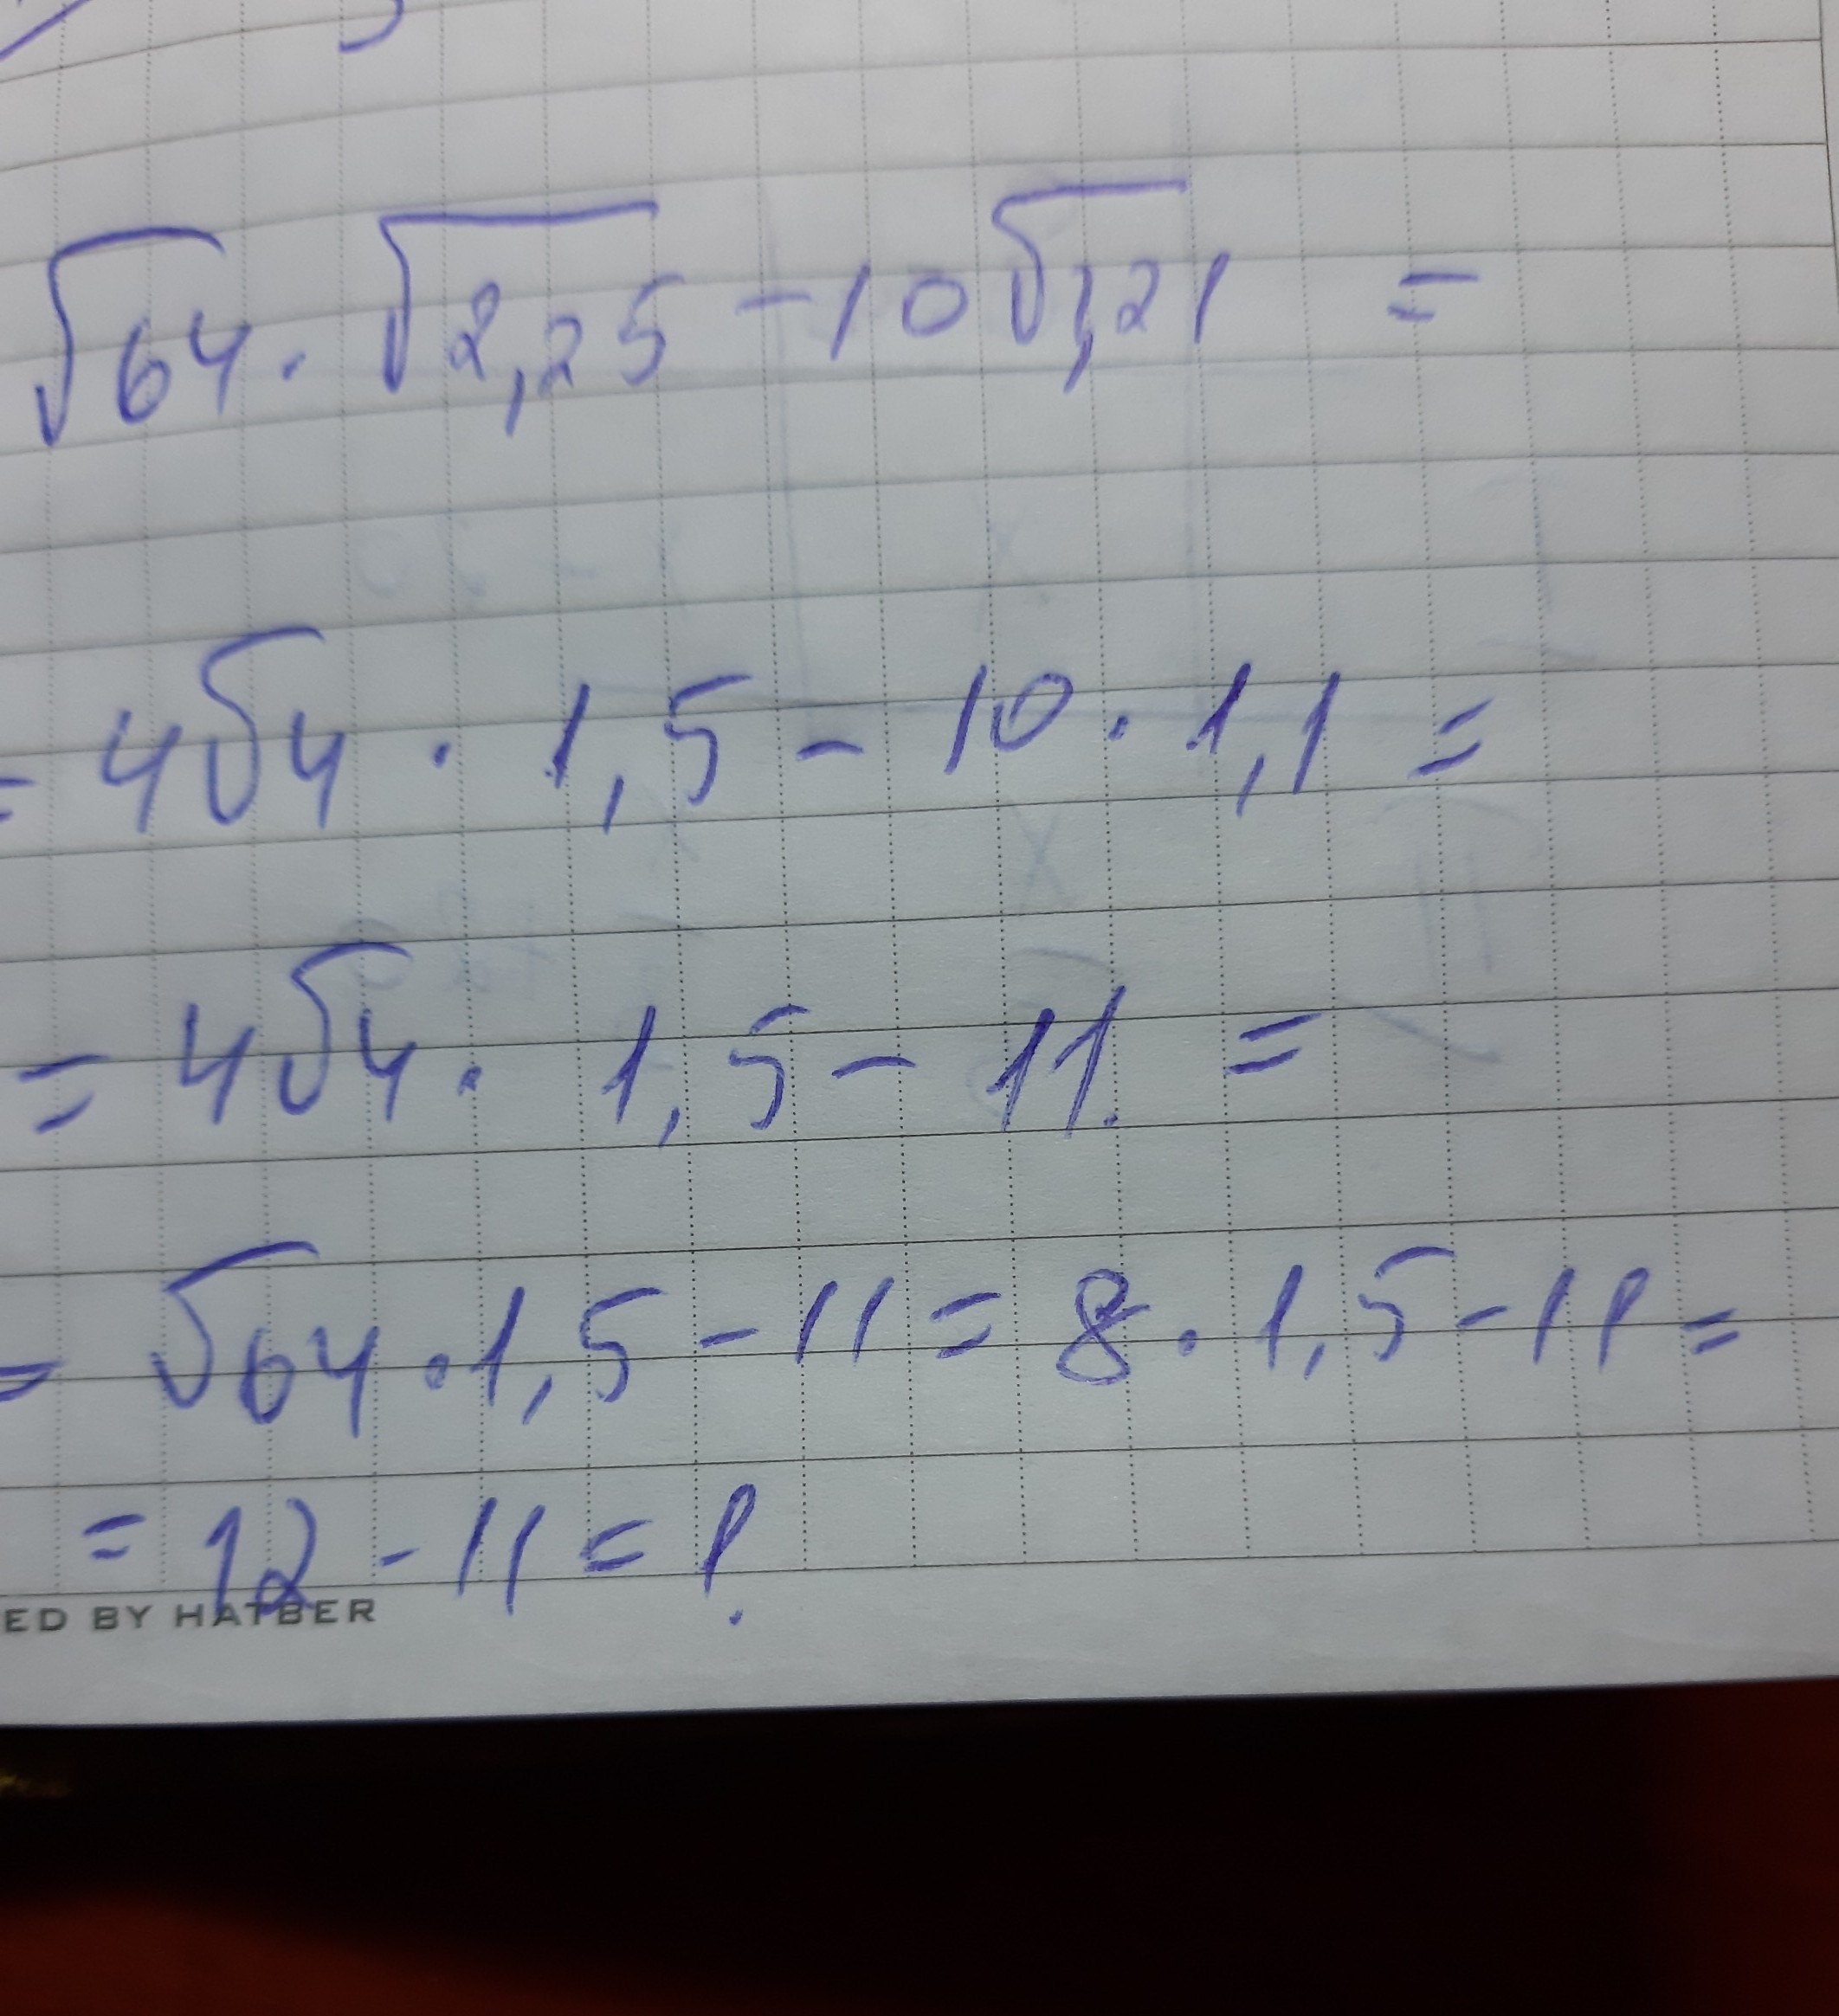 √64 · √2,25 - 10√1,21 =
= 4√4 · 1,5 - 10 · 1,1 =
= 4√4 · 1,5 - 11 =
= √64 · 1,5 - 11 = 8 · 1,5 - 11 =
= 12 - 11 = 1.
ED BY HATBER